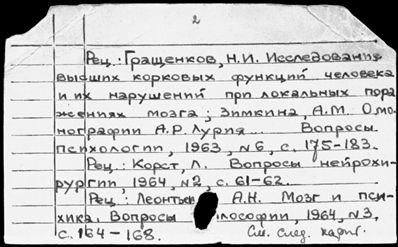 2
Рец.: Гращенков, Н.И. Исследования
высших корковых функций человека
и их нарушений при локальных пора
жениях мозга; Зимкина, А.М. О мо
нографии А.Р. Лурия... Вопросы
психологии, 1963, №6, с. 175-183.
Рец.: Корст, Л. Вопросы нейрохи-
рургии, 1964, №2, с. 61-62.
Рец.: Леонтьев А.Н. Мозг и пси-
хика. Вопросы илософии, 1964, №3,
с. 164-168. См. след. карт.